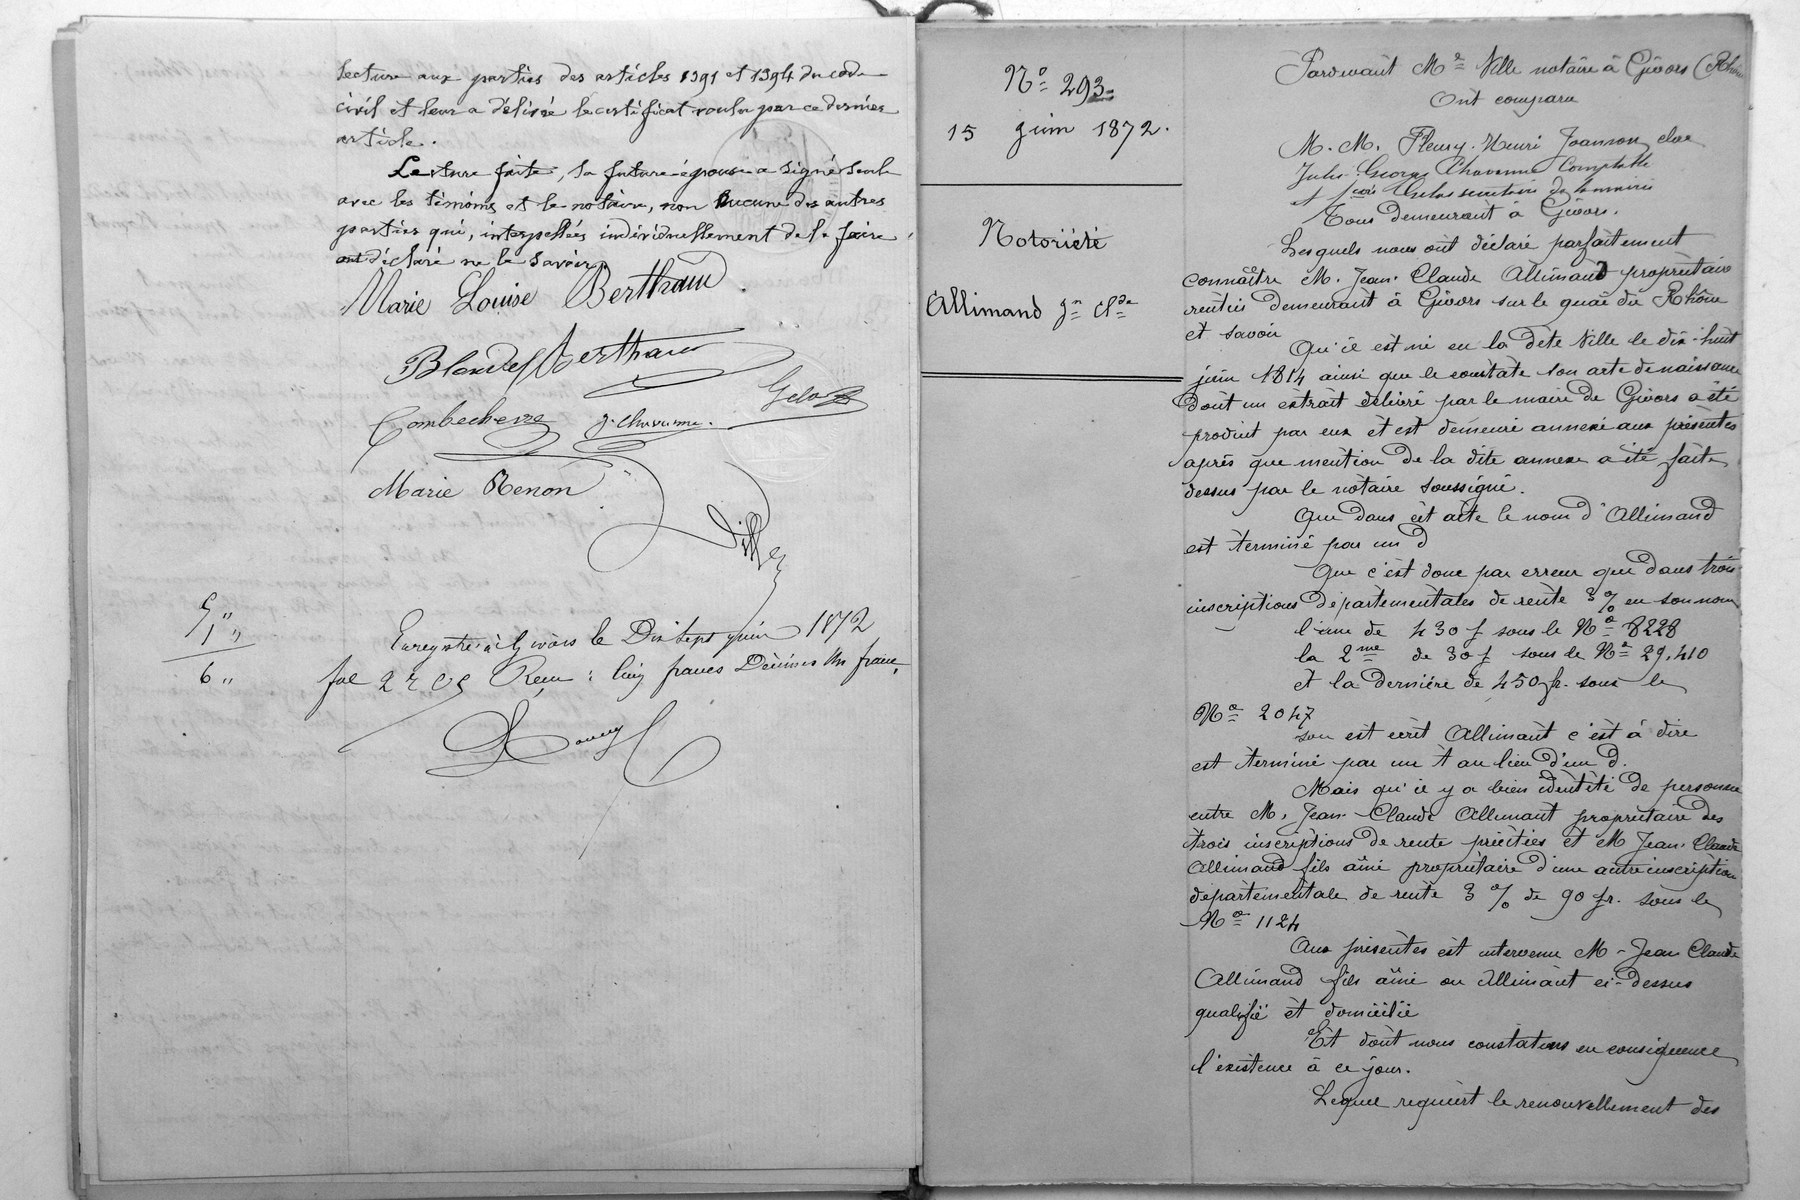 Lecture aux parties des articles 1391 et 1394 du code
civil et leur a délivré le certificat voulu par ce dernier
article.
Lecture faite, la future épouse a signé seule
avec les témoins et le notaire, non aucune des autres
parties qui, interpellées individuellement de le faire
ont déclaré ne le savoir.
Marie Louise Berthaud
Blondel Berthaud
Combecherre J. Chavanne. Gelas
Marie Renon
Ville
5 „
1 „
6 „
Enregistré à Givors le Dix sept juin 1872
fol 27 C 5 Reçu : Cinq francs Décimes Un franc,
Nº 293
15 Juin 1872.
Notoriété
Allimand Jn Cde
Pardevant Me Ville notaire à Givors (Rhône
Ont comparu
M. M. Fleury-Henri Joannon, clerc
Jules-George Chavanne Comptable
et Gelas secrétaire de la mairie
Tous demeurant à Givors.
Lesquels nous ont déclaré parfaitement
connaître M. Jean-Claude Allimand propriétaire
rentier demeurant à Givors sur le quai du Rhône
et savoir
Qu'il est né en la dite Ville le dix-huit
juin 1814 ainsi que le constate son acte de naissance
dont un extrait délivré par le maire de Givors a été
produit par eux et est demeuré annexé aux présentes
après que mention de la dite annexe a été faite
dessus par le notaire soussigné.
Que dans cet acte le nom d'Allimand
est terminé par un d
Que c'est donc par erreur que dans trois
inscriptions départementales de rente 3 % en son nom
l'une de 430 f sous le Nº 8228
la 2me de 30 f sous le Nº 29.410
et la dernière de 450 fr. sous le
Nº 2047
son est écrit Allimant c'est à dire
est terminé par un t au lieu d'un d.
Mais qu'il y a bien identité de personne
entre M. Jean-Claude Allimant propriétaire des
trois inscriptions de rente précitées et M Jean-Claude
Allimand fils aîné propriétaire d'une autre inscription
départementale de rente 3 % de 90 fr. sous le
Nº 1124
Aux présentes est intervenu M-Jean Claude
Allimand fils aîné ou Allimant ci-dessus
qualifié et domicilié
Et dont nous constatons en conséquence
l'existence à ce jour.
Lequel requiert le renouvellement des